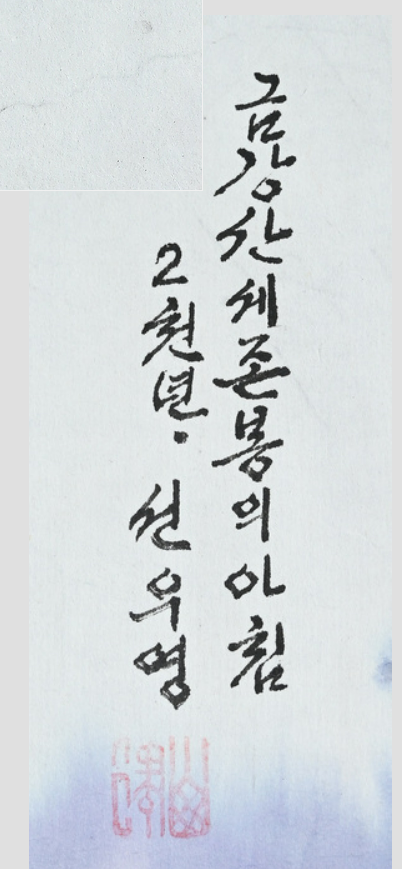 금강산세존봉의아침
2천년. 선우영